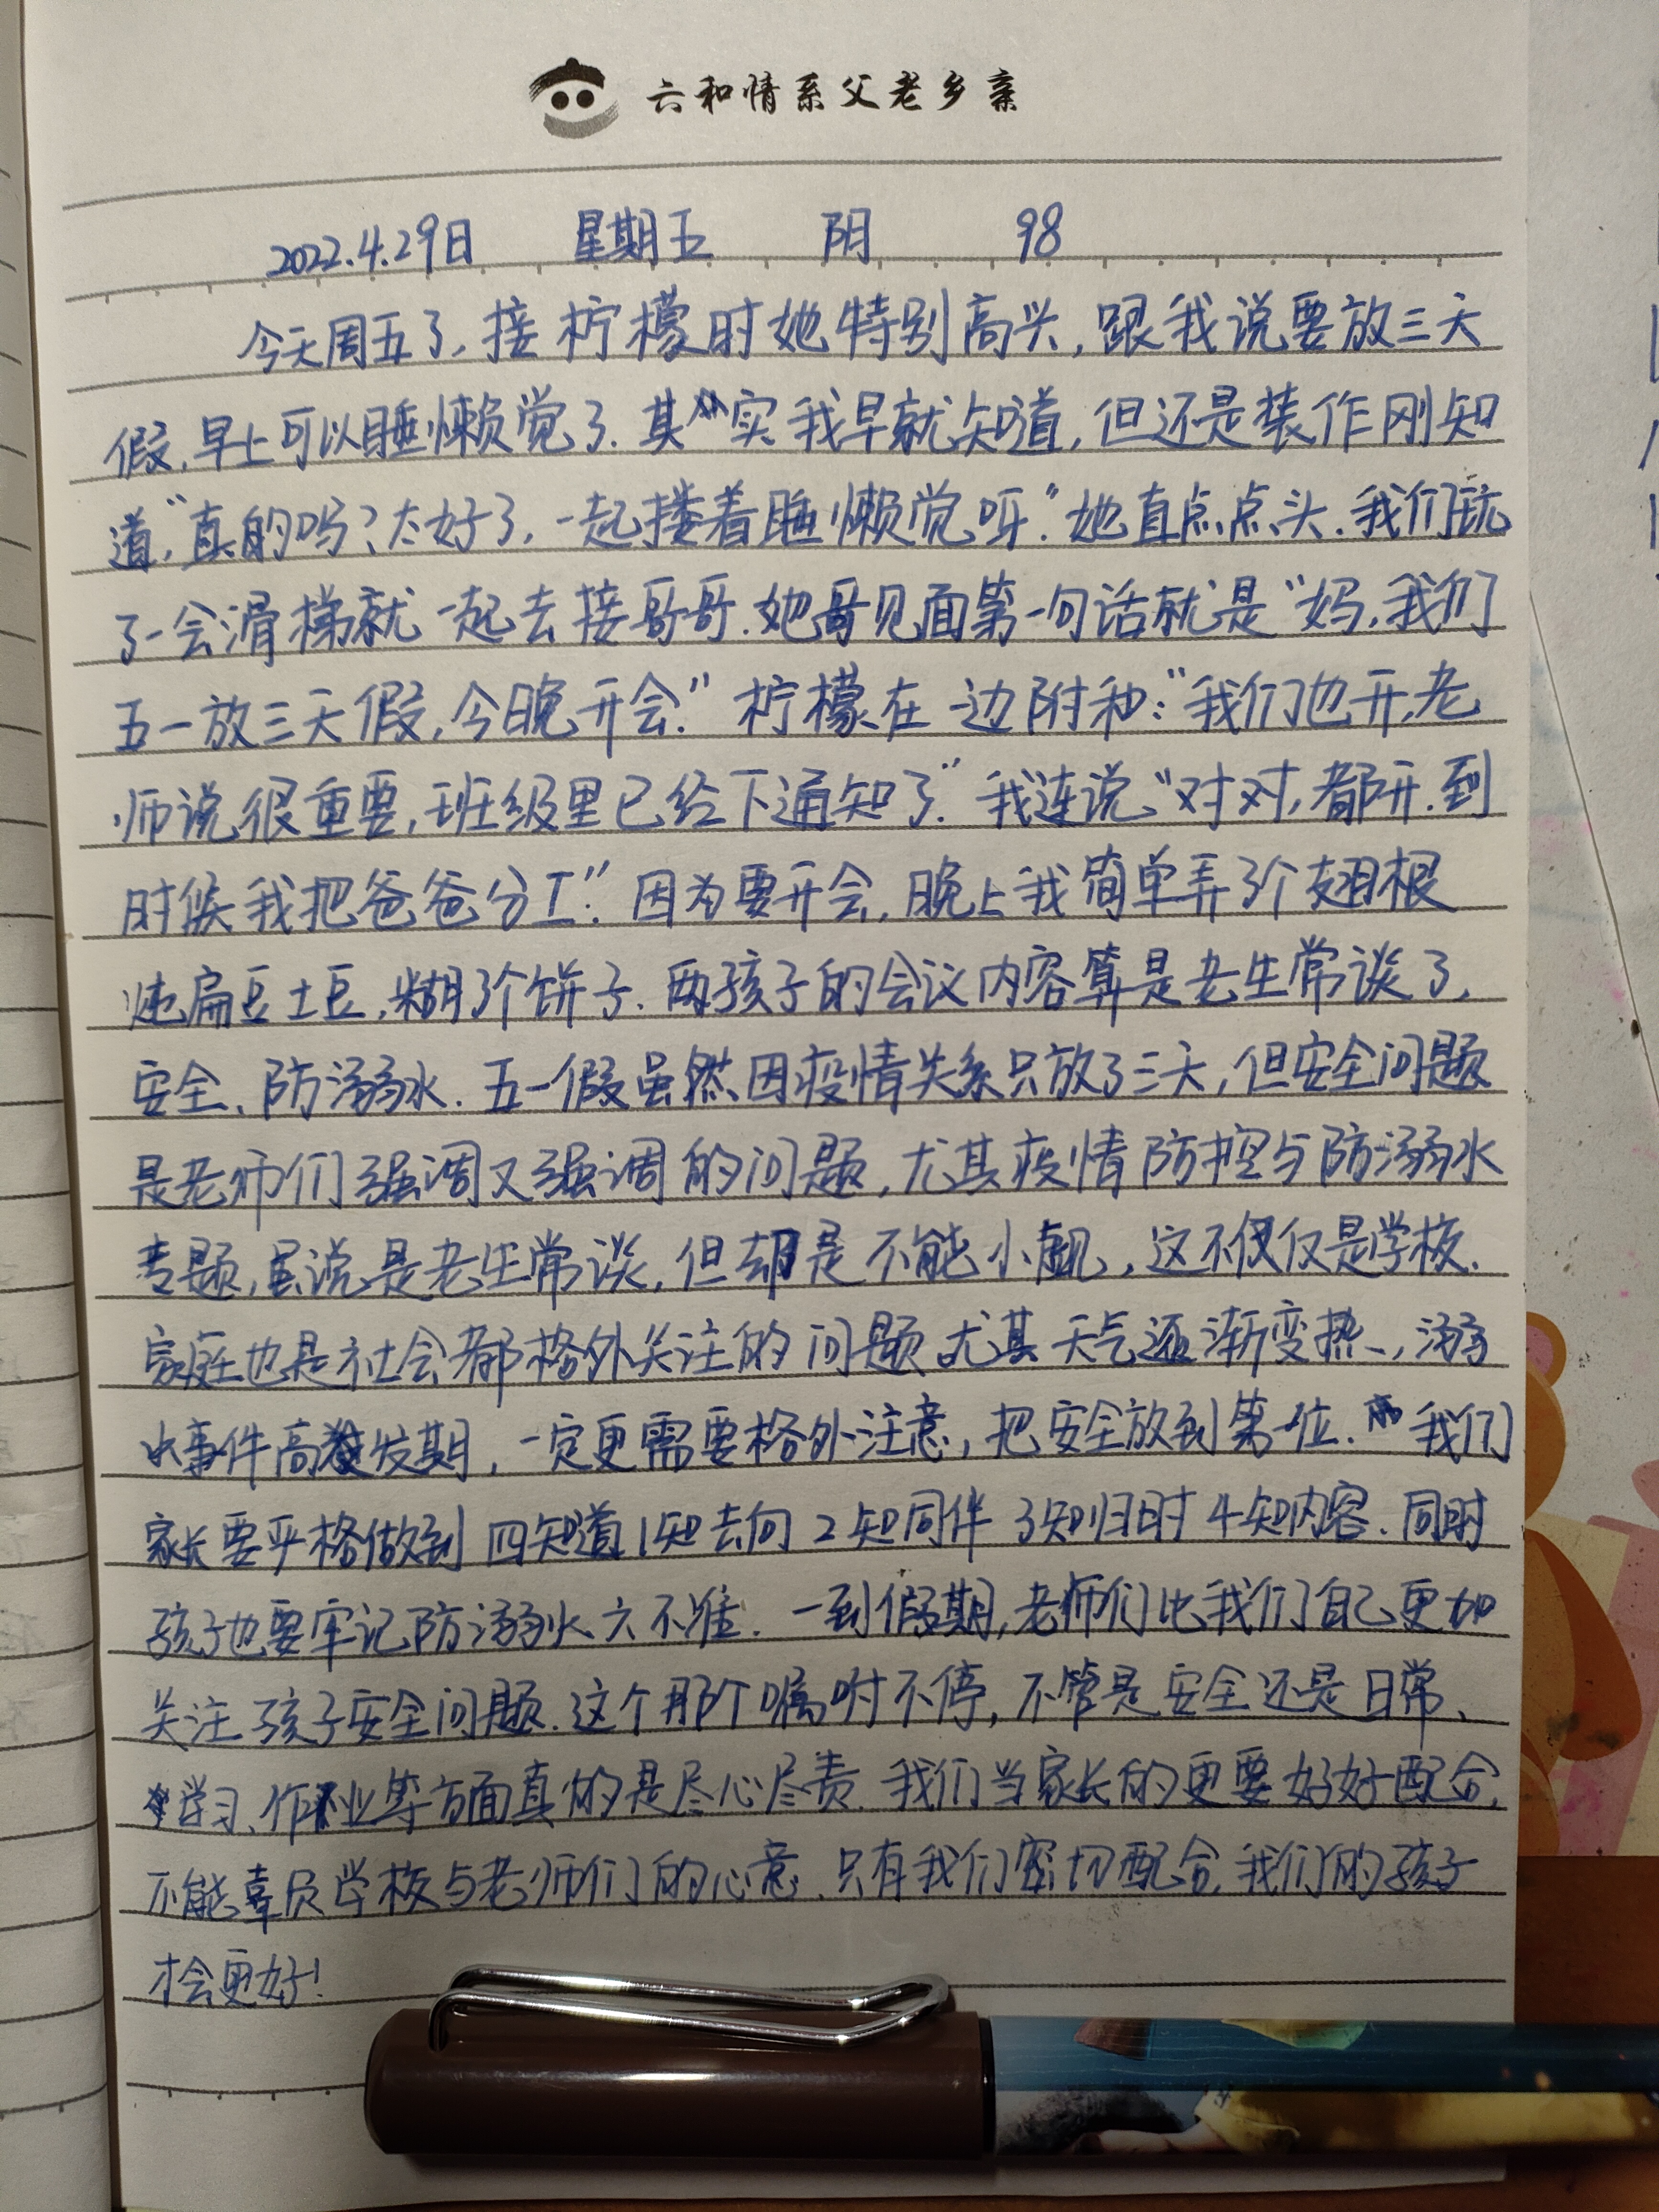 六和情系父老乡亲
2022.4.29日 星期五 阴 98
今天周五了,接柠檬时她特别高兴,跟我说要放三天
假,早上可以睡懒觉了.其实我早就知道,但还是装作刚知
道,"真的吗?太好了,一起搂着睡懒觉呀."她直点点头.我们玩
了一会滑梯就一起去接哥哥.她哥见面第一句话就是"妈,我们
五一放三天假,今晚开会."柠檬在一边附和:"我们也开,老
师说很重要,班级里已经下通知了."我连说"对对,都开.到
时候我把爸爸分工."因为要开会,晚上我简单弄了个翅根
炖扁豆土豆,糊了个饼子.两孩子的会议内容算是老生常谈了,
安全、防溺水.五一假虽然因疫情关系只放了三天,但安全问题
是老师们强调又强调的问题,尤其疫情防控与防溺水
专题,虽说是老生常谈,但却是不能小觑,这不仅仅是学校.
家庭也是社会都格外关注的问题尤其天气逐渐变热,溺
水事件高发期,一定更需要格外注意,把安全放到第一位.我们
家长要严格做到四知道1知去向2知同伴3知归时4知内容.同时
孩子也要牢记防溺水六不准.一到假期,老师们比我们自己更加
关注孩子安全问题.这个那个嘱咐不停,不管是安全还是日常、
学习、作业等方面真的是尽心尽责.我们当家长的更要好好配合,
不能辜负学校与老师们的心意.只有我们密切配合,我们的孩子
才会更好!